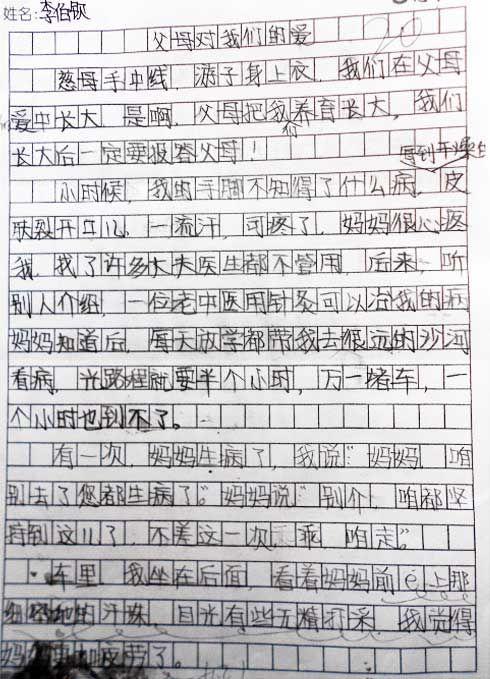 姓名:李伯
父母对我们的爱 20
慈母手中线，游子身上衣，我们在父母
爱中长大，是啊，父母把我们养育长大，我们
长大后一定要报答父母！
写到
小时候，我的手脚不知得了什么病，皮
肤裂开口儿，一流汗，可疼了，妈妈很心疼
我，找了许多大夫医生都不管用，后来，听
别人介绍，一位老中医用针灸可以治我的病
妈妈知道后，每天放学都带我去很远的沙河
看病，光路程就要半个小时，万一堵车，一
个小时也到不了。
有一次，妈妈生病了，我说“妈妈，咱
别去了您都生病了。”妈妈说“别介，咱都坚
持到这儿了，不差这一次，乖，咱走。”
车里，我坐在后面，看着妈妈前e上那
的汗珠，目光有些无精打采，我觉得
妈妈 疲劳了。